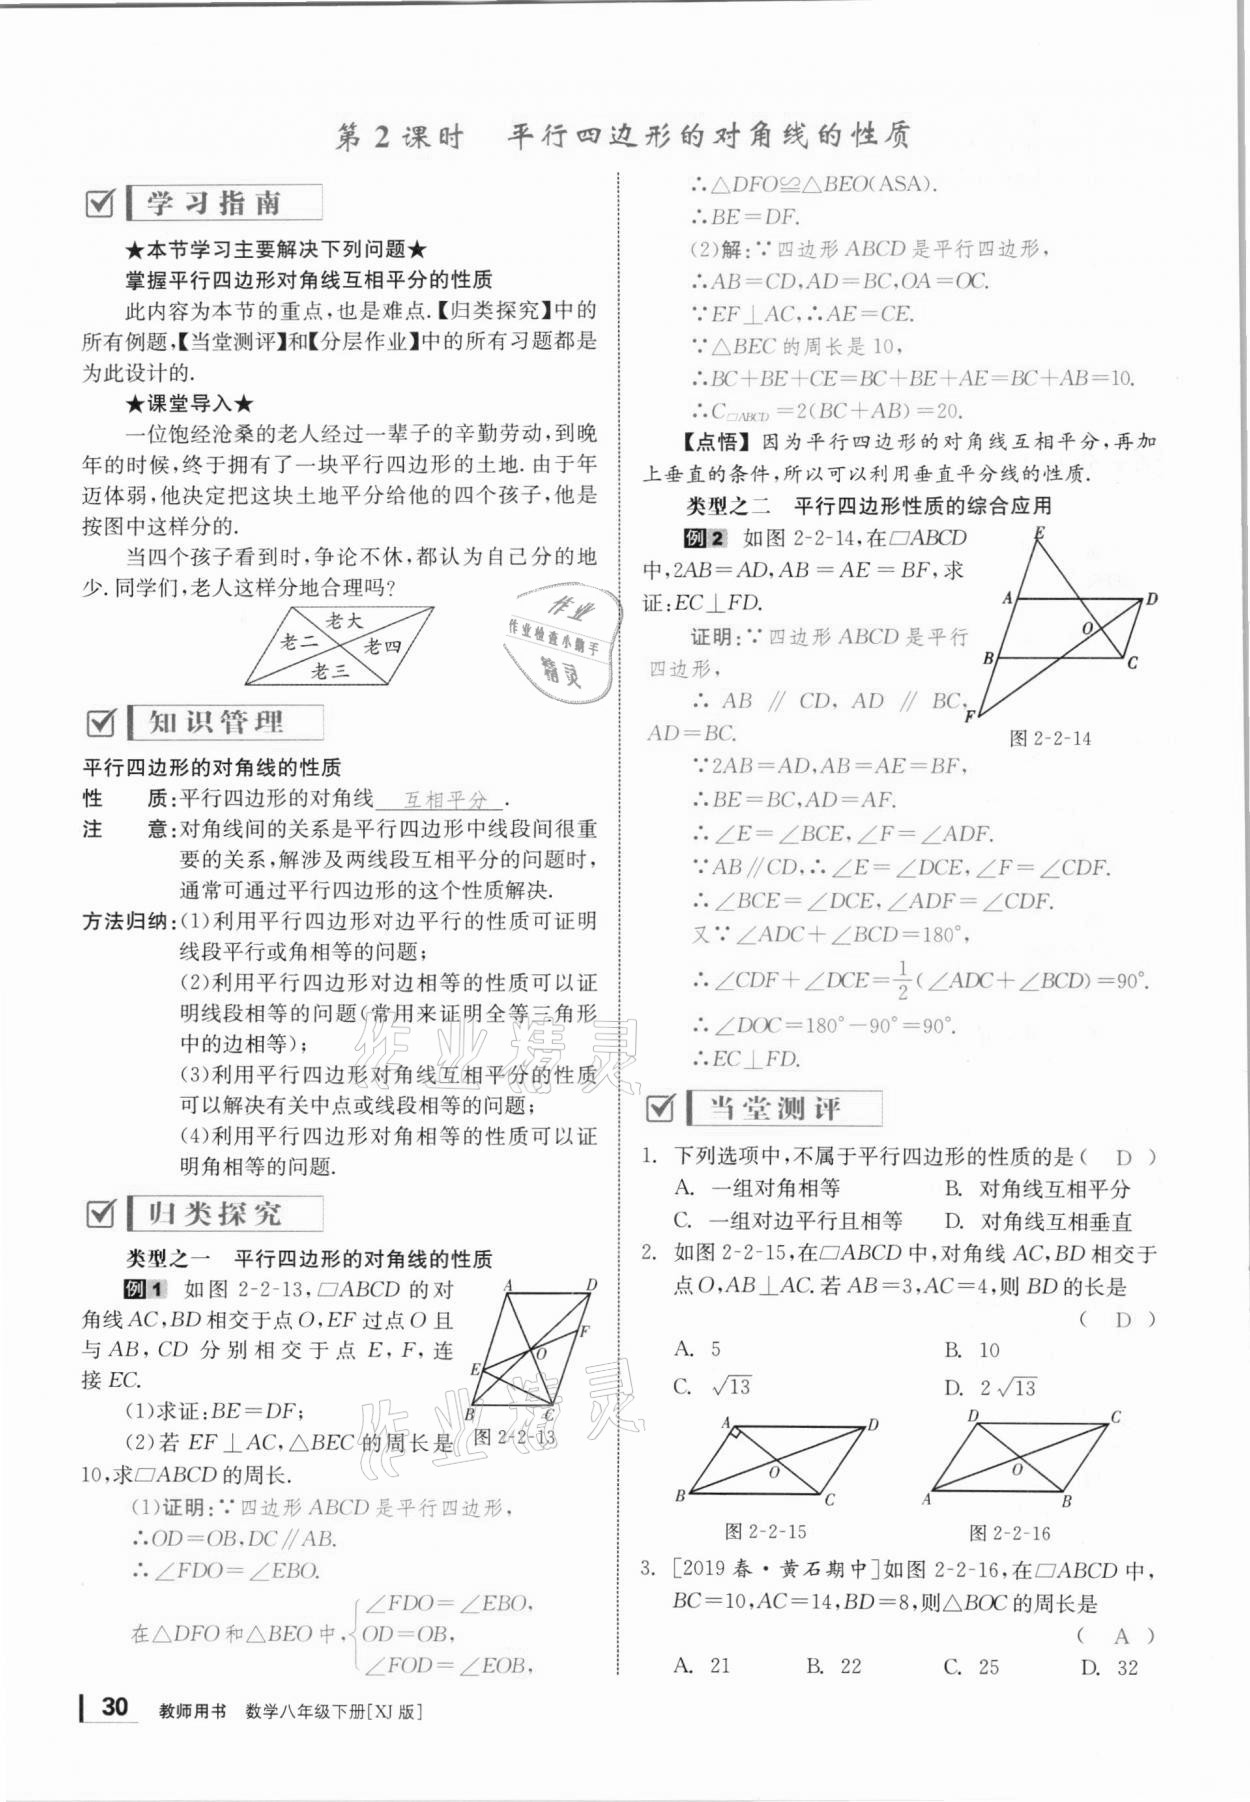 第2课时 平行四边形的对角线的性质
学习指南
★本节学习主要解决下列问题★
掌握平行四边形对角线互相平分的性质
此内容为本节的重点,也是难点.【归类探究】中的
所有例题,【当堂测评】和【分层作业】中的所有习题都是
为此设计的.
★课堂导入★
一位饱经沧桑的老人经过一辈子的辛勤劳动,到晚
年的时候,终于拥有了一块平行四边形的土地.由于年
迈体弱,他决定把这块土地平分给他的四个孩子,他是
按图中这样分的.
当四个孩子看到时,争论不休,都认为自己分的地
少.同学们,老人这样分地合理吗?
老大
老二 老四
老三
知识管理
平行四边形的对角线的性质
性 质:平行四边形的对角线 互相平分 .
注 意:对角线间的关系是平行四边形中线段间很重
要的关系,解涉及两线段互相平分的问题时,
通常可通过平行四边形的这个性质解决.
方法归纳:(1)利用平行四边形对边平行的性质可证明
线段平行或角相等的问题;
(2)利用平行四边形对边相等的性质可以证
明线段相等的问题(常用来证明全等三角形
中的边相等);
(3)利用平行四边形对角线互相平分的性质
可以解决有关中点或线段相等的问题;
(4)利用平行四边形对角相等的性质可以证
明角相等的问题.
归类探究
类型之一 平行四边形的对角线的性质
例1 如图2-2-13,▱ABCD的对
角线AC,BD相交于点O,EF过点O且
与AB,CD分别相交于点E,F,连
接EC.
(1)求证:BE=DF;
(2)若EF⊥AC,△BEC的周长是
10,求▱ABCD的周长.
A D
F
O
E
B C
图2-2-13
(1)证明:∵四边形ABCD是平行四边形,
∴OD=OB,DC∥AB.
∴∠FDO=∠EBO.
在△DFO和△BEO中,
∠FDO=∠EBO,
OD=OB,
∠FOD=∠EOB,
∴△DFO≌△BEO(ASA).
∴BE=DF.
(2)解:∵四边形ABCD是平行四边形,
∴AB=CD,AD=BC,OA=OC.
∵EF⊥AC,∴AE=CE.
∵△BEC的周长是10,
∴BC+BE+CE=BC+BE+AE=BC+AB=10.
∴C▱ABCD=2(BC+AB)=20.
【点悟】 因为平行四边形的对角线互相平分,再加
上垂直的条件,所以可以利用垂直平分线的性质.
类型之二 平行四边形性质的综合应用
例2 如图2-2-14,在▱ABCD
中,2AB=AD,AB=AE=BF,求
证:EC⊥FD.
E
A D
O
B C
F
图2-2-14
证明:∵四边形ABCD是平行
四边形,
∴AB∥CD,AD∥BC,
AD=BC.
∵2AB=AD,AB=AE=BF,
∴BE=BC,AD=AF.
∴∠E=∠BCE,∠F=∠ADF.
∵AB∥CD,∴∠E=∠DCE,∠F=∠CDF.
∴∠BCE=∠DCE,∠ADF=∠CDF.
又∵∠ADC+∠BCD=180°,
∴∠CDF+∠DCE=1/2(∠ADC+∠BCD)=90°.
∴∠DOC=180°-90°=90°.
∴EC⊥FD.
当堂测评
1. 下列选项中,不属于平行四边形的性质的是( D )
A. 一组对角相等 B. 对角线互相平分
C. 一组对边平行且相等 D. 对角线互相垂直
2. 如图2-2-15,在▱ABCD中,对角线AC,BD相交于
点O,AB⊥AC.若AB=3,AC=4,则BD的长是
( D )
A. 5 B. 10
C. √13 D. 2√13
A D
O
B C
图2-2-15
D C
O
A B
图2-2-16
3. [2019春·黄石期中]如图2-2-16,在▱ABCD中,
BC=10,AC=14,BD=8,则△BOC的周长是
( A )
A. 21 B. 22 C. 25 D. 32
30 教师用书 数学八年级下册[XJ版]
作业
作业检查小助手
精灵
作业精灵
作业精灵